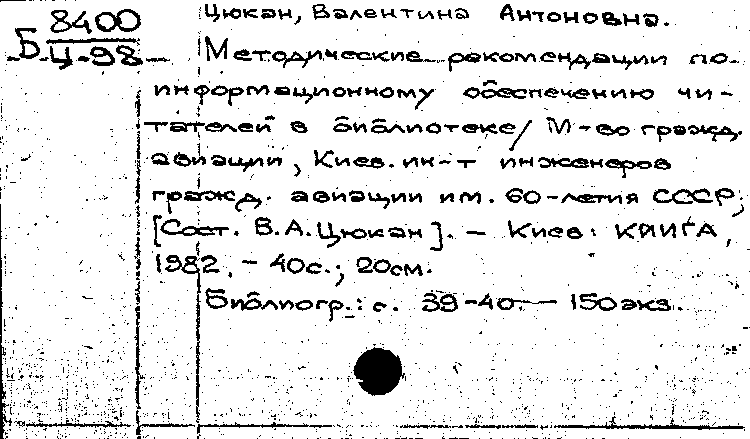 8400
Б Ц-98
Цюкан, Валентина Антоновна.
Методические рекомендации по
информационному обеспечению чи-
тателей в библиотеке/ М-во гражд.
авиации, Киев. ин-т инженеров
гражд. авиации им. 60-летия СССР;
[Сост. В.А.Цюкан]. - Киев: КИИГА,
1982. - 40с.; 20см.
Библиогр.: с. 39-40. - 150экз.